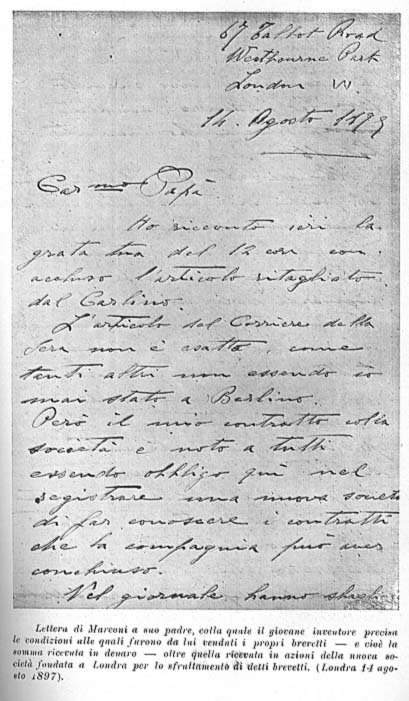 67 Talbot Road
Westbourne Park
London W.
14. Agosto 1897
Car.mo Papà
Ho ricevuto ieri la
grata tua del 12 cor con
accluso l'articolo ritagliato
dal Carlino.
L'articolo del Corriere della
Sera non è esatto, come
tanti altri non essendo io
mai stato a Berlino.
Però il mio contratto colla
società è noto a tutti
essendo obbligo quì nel
registrare una nuova società
di far conoscere i contratti
che la compagnia può aver
conchiuso.
Nel giornale hanno
Lettera di Marconi a suo padre, colla quale il giovane inventore precisa
le condizioni alle quali furono da lui venduti i propri brevetti — e cioè la
somma ricevuta in denaro — oltre quella ricevuta in azioni della nuova so-
cietà fondata a Londra per lo sfruttamento di detti brevetti. (Londra 14 ago-
sto 1897).